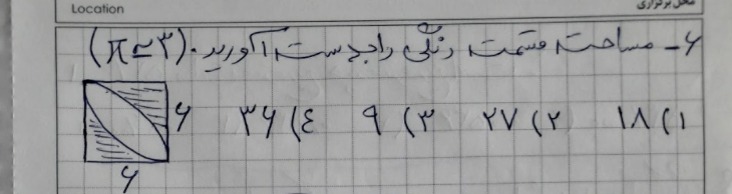 Location
محل برگزاری
۶- مساحت قسمت رنگی را بدست آورید. (π≃۳)
۱) ۱۸ ۲) ۲۷ ۳) ۹ ۴) ۳۶
۶
۶